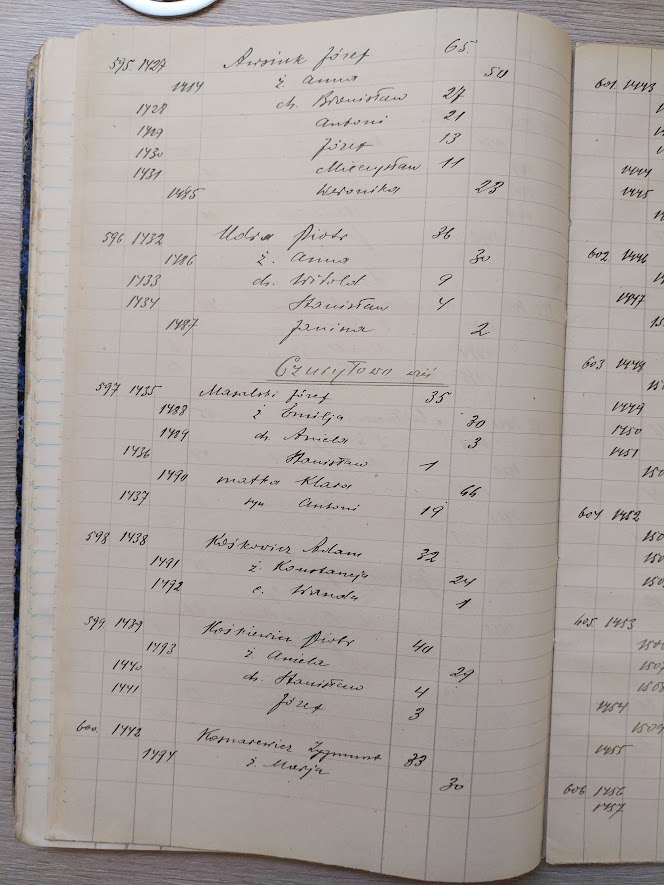 595 1427 Józef 65
1484 ż. Anna 50
1428 dz. Bronisław 27
1429 Antoni 21
1430 Józef 13
1431 Mieczysław 11
1485 Weronika 23
596 1432 Piotr 36
1486 ż. Anna 30
1433 dz. Witold 9
1434 Stanisław 4
1487 Janina 2
wieś
597 1435 Masalski Józef 35
1488 ż Emilja 30
1489 dz. Aniela 3
1436 Stanisław 1
1490 matka Klara 66
1437 syn Antoni 19
598 1438 Adam 32
1491 ż Konstancja 24
1492 c. Wanda 1
599 1439 Piotr 40
1493 ż Aniela 29
1440 dz. Stanisław 4
1441 Józef 3
600 1442 Komarewicz Zygmunt 33
1494 ż. Marja 30
601 1443
1444
1445
602 1446
1447
603 1448
1449
1450
1451
604 1452
605 1453
1454
1455
606 1456
1457